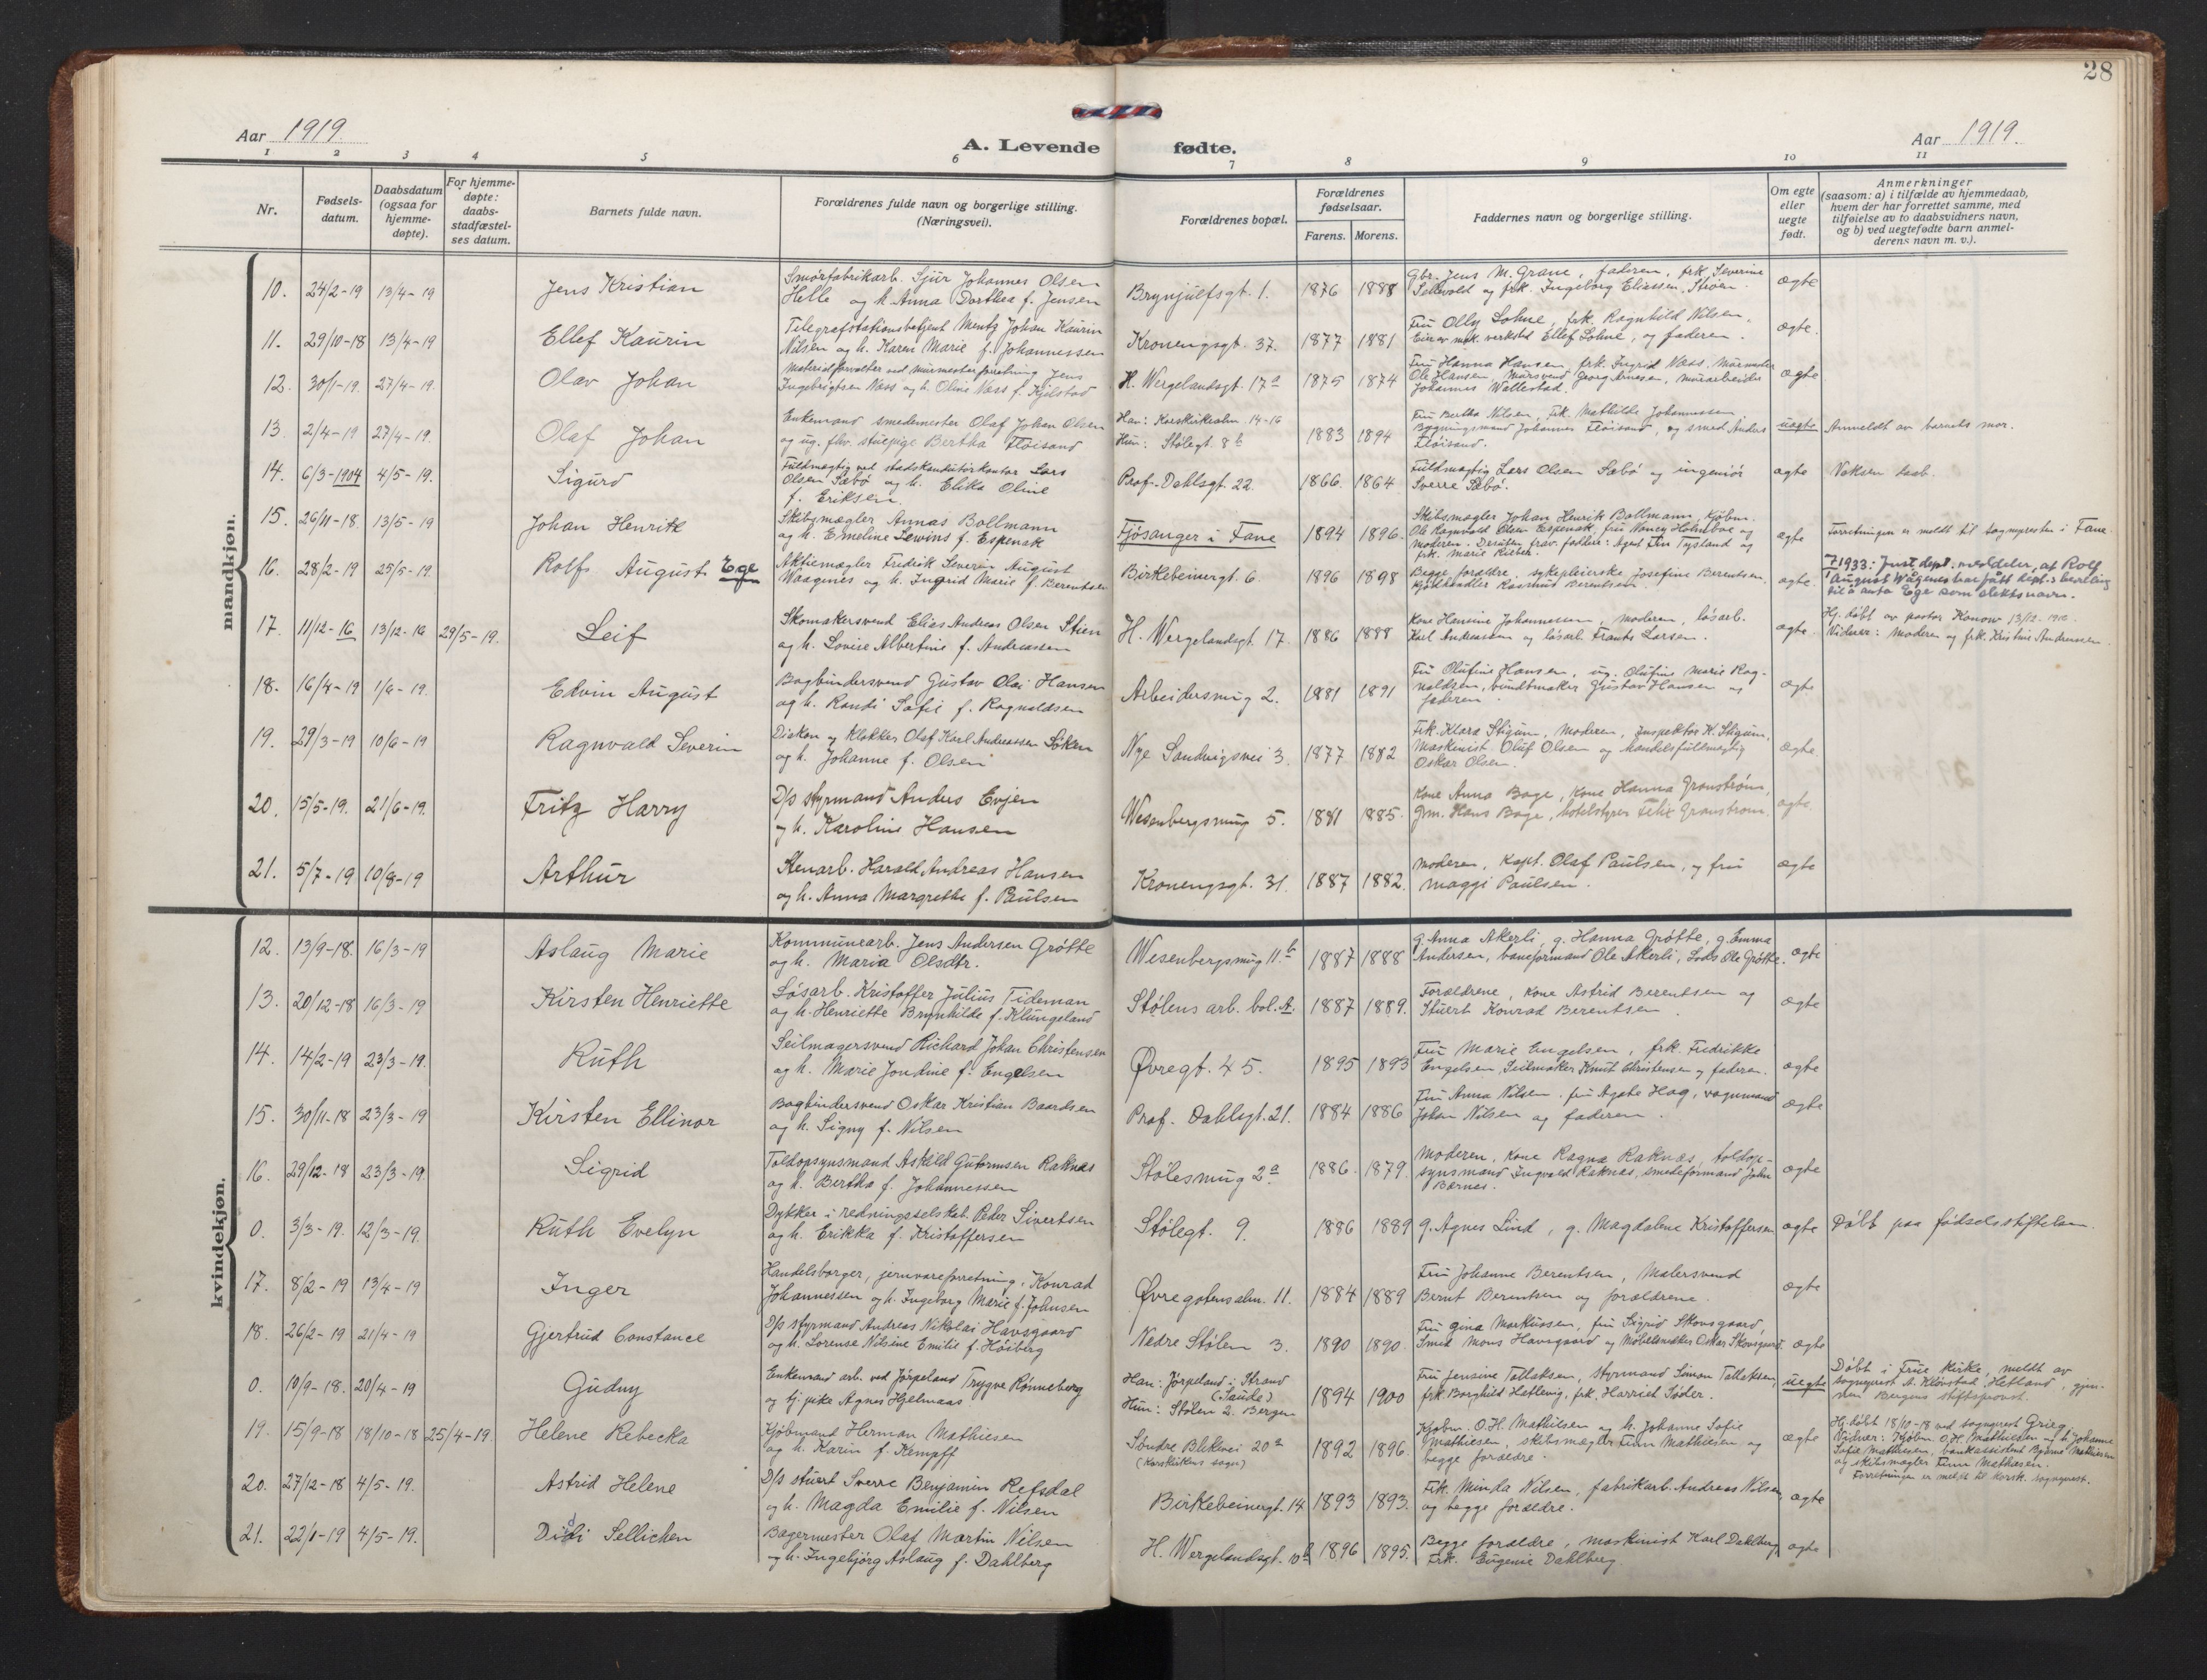 28
Aar 1919.
A. Levende fødte.
Aar 1919.
1 2 3 4 5 6 7 8 9 10 11
Nr.
Fødsels-
datum.
Daabsdatum
(ogsaa for
hjemme-
døpte).
For hjemme-
døpte:
daabs-
stadfæstel-
ses datum.
Barnets fulde navn.
Forældrenes fulde navn og borgerlige stilling.
(Næringsvei).
Forældrenes bopæl.
Forældrenes
fødselsaar.
Farens. Morens.
Faddernes navn og borgerlige stilling.
Om egte
eller
uegte
født.
Anmerkninger
(saasom: a) i tilfælde av hjemmedaab,
hvem der har forrettet samme, med
tilføielse av to daabsvidners navn,
og b) ved uegtefødte barn anmel-
derens navn m. v.).
mandkjøn.
10. 24/2-19 13/4-19 Jens Kristian
Smørfabrikarb. Sjur Johannes Olsen
Helle og h. Anna Dorthea f. Jensen
Brynjulfsgt. 1. 1876 1888
Gbr. Jens M. Grane, faderen, frk. Severine
Sellevold og frk. Ingeborg Eliassen, Strøen.
ægte
11. 29/10-18 13/4-19 Ellef Kaurin
Telegrafstationsbetjent Mentz Johan Kaurin
Nilsen og h. Karen Marie f. Johannessen
Kronengsgt. 37. 1877 1881
Fru Olly Lohne, frk. Ragnhild Nilsen,
Eier av mek. verksted Ellef Lohne, og faderen.
ægte.
12. 30/1-19. 27/4-19. Olav Johan
Materialforvalter ved murmesterforretning Jens
Ingebrigtsen Næss og h. Oline Næss f. Kjilstad
H. Wergelandsgt. 17a 1875 1874
Fru Hanna Hansen, frk. Ingrid Næss, Murmester
Ole Hansen, Mursvend Georg Arnesen, murarbeider
Johannes Wallestad.
ægte
13. 2/4-19 27/4-19. Olaf Johan
Enkemand smedemester Olaf Johan Olsen
og ug. fhv. stuepige Bertha Fløisand
Han: Korskirkealm. 14-16
Hun: Stølegt. 8b
1883 1894
Fru Bertha Nilsen, frk. Mathilde Johannessen
Bygningsmand Johannes Fløisand, og smed Anders
Fløisand.
uegte Anmeldt av barnets mor.
14. 6/3-1904 4/5-19. Sigurd
Fuldmægtig ved stadskonduktørkontor Lars
Olsen Sæbø og h. Elika Oline
f. Eriksen.
Prof. Dahlsgt. 22. 1866. 1864
Fuldmægtig Lars Olsen Sæbø og ingeniør
Sverre Sæbø.
ægte Voksen daab.
15. 26/11-18. 13/5-19 Johan Henrik
Skibsmægler Annas Bollmann
og h. Emeline Lewins f. Espenak
Fjøsanger i Fane 1894 1896.
Skibsmægler Johan Henrik Bollmann, Kjøbm.
Ole Ragnvald Olsen Espenak, fru Nancy Holmboe og
moderen. Desuten frav. faddere: Agent Finn Tysland og
frk. Marie Rieber.
ægte Forretningen er meldt til sognepresten i Fane.
16. 28/2-19 25/5-19. Rolf August Ege
Aktiemægler Fredrik Severin August
Waagenes og h. Ingrid Marie f. Berentsen
Birkebeinergt. 6. 1896 1898
Begge forældre, sykepleierske Josefine Berentsen,
Kjøthandler Rasmus Berentsen.
ægte.
1933: Just.dept. meddeler, at Rolf
August Wågenes har fått dept.s bevilling
til å anta Ege som slektsnavn.
17. 11/12-16 13/12-16 29/5-19. Leif
Skomakersvend Elias Andreas Olsen Stien
og h. Lovise Albertine f. Andreassen
H. Wergelandsgt. 17. 1886 1888
Kone Hansine Johannessen, moderen, løsarb.
Karl Andreassen og løsarb. Frants Larsen.
ægte.
Hj. døbt av pastor Konow 13/12-1916.
Vidner: Moderen og frk. Kristine Andreassen.
18. 16/4-19 1/6-19. Edvin August
Bogbindersvend Gustav Olai Hansen
og h. Randi Sofie f. Ragnaldsen
Arbeidersmug 2. 1881 1891
Fru Olufine Hansen, ug. Olufine Marie Rag-
naldsen, bundtmaker Gustav Hansen og
faderen.
ægte
19. 29/3-19 10/6-19 Ragnvald Severin
Diakon og klokker Olaf Karl Andreassen Søknes
og h. Johanne f. Olsen
Nye Sandvigsvei 3. 1877 1882
Frk. Klara Stigum, Moderen, Inspektør K. Stigum,
Maskinist Oluf Olsen og handelsfullmægtig
Oskar Olsen.
ægte.
20. 15/5-19. 21/6-19. Fritz Harry
D/s styrmand Anders Evjen
og h. Karoline Hansen
Wesenbergsmug 5. 1881 1885.
Kone Anna Bage, Kone Hanna Granstrøm,
Grm. Hans Bage, hotelstyrer Felix Granstrøm.
ægte.
21. 5/7-19 10/8-19 Arthur
Stenarb. Harald Andreas Hansen
og h. Anna Margrethe f. Paulsen
Kronengsgt. 31. 1887 1882.
Moderen, Kapt. Olaf Paulsen, og fru
Maggi Paulsen.
ægte
kvindekjøn.
12. 13/9-18. 16/3-19 Aslaug Marie
Kommunearb. Jens Andersen Grøtte
og h. Maria Olsdtr.
Wesenbergsmug 11.b 1887 1888
g. Anna Akerli, g. Hanna Grøtte, g. Emma
Andersen, baneformand Ole Akerli, Lods Ole Grøtte.
ægte
13. 20/12-18 16/3-19 Kirsten Henriette
Løsarb. Kristoffer Julius Tideman
og h. Henriette Brynhilde f. Klungeland
Stølens arb. bol. A. 1887 1889.
Forældrene, Kone Astrid Berentsen og
Stuert Konrad Berentsen.
ægte
14. 14/2-19 23/3-19. Ruth
Seilmagersvend Richard Johan Christensen
og h. Marie Jondine f. Engelsen
Øvregt. 45. 1895 1893
Fru Marie Engelsen, frk. Fredrikke
Engelsen, Seilmaker Knut Christensen og faderen.
ægte
15. 30/11-18 23/3-19 Kirsten Ellinor
Bogbindersvend Oskar Kristian Baardsen
og h. Signy f. Nilsen
Prof. Dahlsgt. 21. 1884 1886
Fru Anna Nilsen, fru Agate Hag, vognmand
Johan Nilsen og faderen.
ægte
16. 29/12-18 23/3-19. Sigrid
Toldopsynsmand Askild Guttormsen Raknæs
og h. Bertha f. Johannessen
Stølesmug 2a 1886. 1879.
Moderen, Kone Ragna Raknæs, toldop-
synsmand Ingvald Raknæs, smedeformand John
Bærnes.
ægte
0. 3/3-19. 12/3-19. Ruth Evelyn
Dykker i redningsselskab. Peder Sivertsen
og h. Erikka f. Kristoffersen
Stølegt. 9. 1886 1889
g. Agnes Lind, g. Magdalene Kristoffersen
ægte Døbt paa fødselsstiftelsen.
17. 8/2-19 13/4-19 Inger
Handelsborger, jernvareforretning, Konrad
Johannessen og h. Ingeborg Marie f. Johnsen
Øvregatens alm. 11. 1884 1889
Fru Johanne Berentsen, Malersvend
Bernt Berentsen og forældrene.
ægte
18. 26/2-19 21/4-19 Gjertrud Constance
D/s styrmand Andreas Nikolai Havsgaard
og h. Lorense Nilsine Emilie f. Høiberg
Nedre Stølen 3. 1890 1890.
Fru Gina Markussen, fru Sigrid Skovsgaard,
Smed Mons Havsgaard og Møbelsnedker Oskar Skovsgaard.
ægte
0. 10/9-18. 20/4-19 Gudny
Enkemand arb. ved Jørpeland Trygve Rønneberg
og tj. pike Agnes Hjelmaas
Han: Jørpeland i Strand
(Sauda)
Hun: Stølen 2. Bergen
1894 1900
Fru Jensine Tollaksen, styrmand Simon Tollaksen,
frk. Borghild Hatlevig, frk. Harriet Søder.
uegte
Døbt i Frue kirke, meldt av
sogneprest A. Kløvstad, Hetland, gjen-
nem Bergens stiftsprovst.
19. 15/9-18 18/10-18 25/4-19. Helene Rebecka
Kjøbmand Herman Mathiesen
og h. Karin f. Kempff
Søndre Blekevei 20a
(Korskirkens sogn)
1892 1896.
Kjøbm. O.H. Mathiesen og h. Johanne Sofie
Mathiesen, skibsmægler Finn Mathiesen og
begge forældre.
ægte
Hj. døbt 18/10-18 ved sogneprest Grieg.
Vidner: Kjøbm. O.H. Mathiesen og h. Johanne
Sofie Mathiesen, bankassistent Bjarne Mathiesen
og skibsmægler Finn Mathiesen.
Forretningen er meldt til Korsk. sogneprest.
20. 27/12-18 4/5-19. Astrid Helene
D/s stuert Sverre Benjamin Refsdal
og h. Magda Emilie f. Nilsen
Birkebeinergt. 14 1893 1893.
Frk. Minda Nilsen, fabrikarb. Andreas Nilsen
og begge forældre.
ægte
21. 22/1-19 4/5-19. Didi Sellicken
Bagermester Olaf Martin Nilsen
og h. Ingebjørg Aslaug f. Dahlberg
H. Wergelandsgt. 10b 1896 1895.
Begge forældre, maskinist Karl Dahlberg
Frk. Eugenie Dahlberg.
ægte